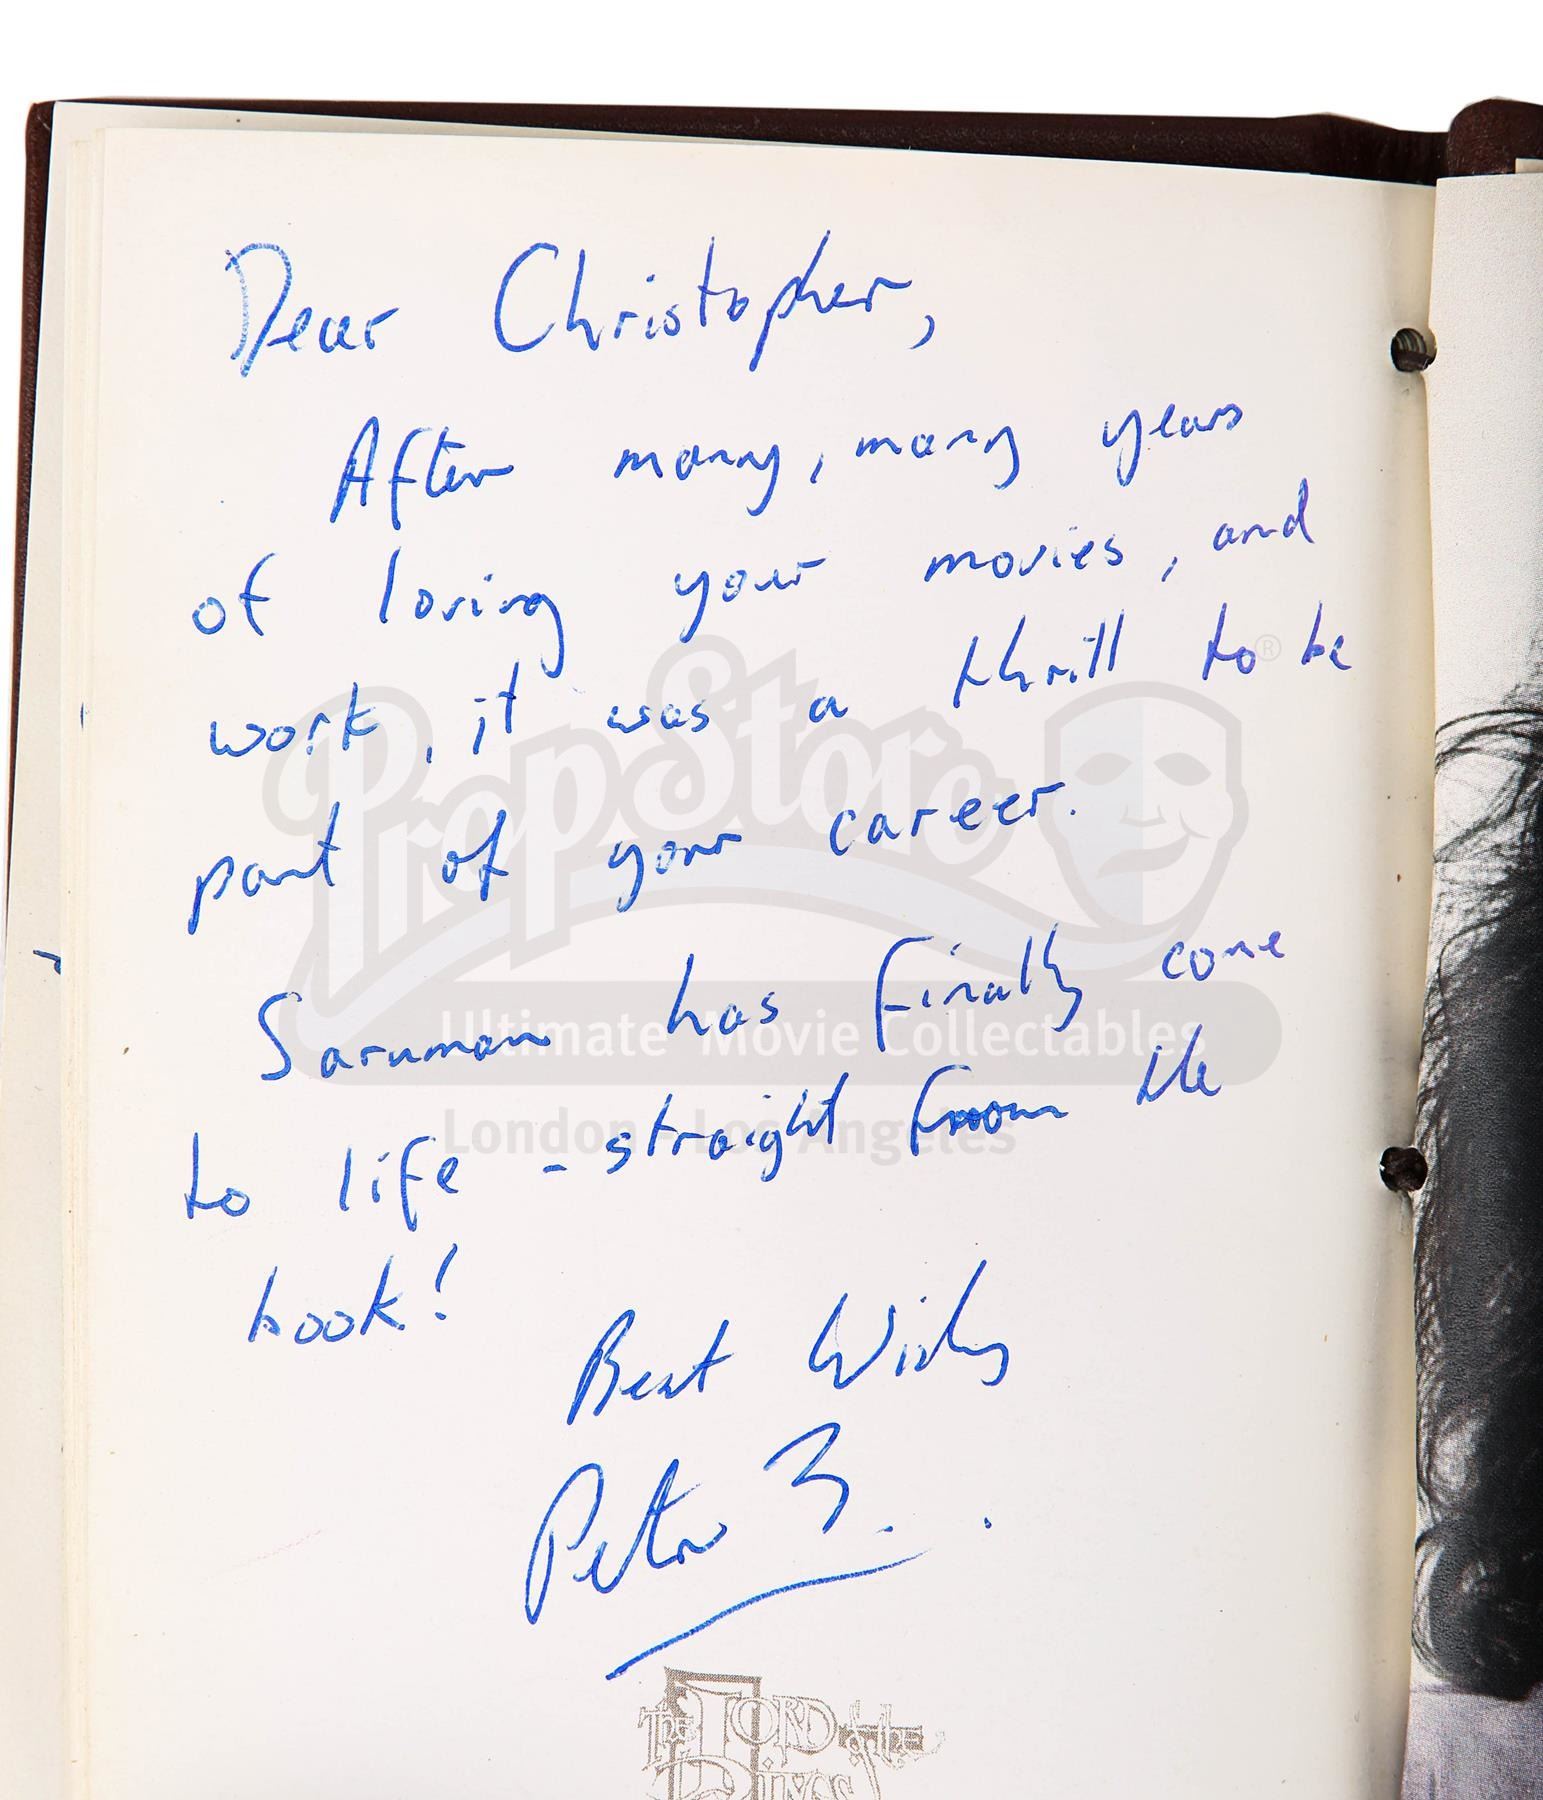 Dear Christopher,
After many, many years
of loving your movies, and
work, it was a thrill to be
part of your career.
Saruman has finally come
to life - straight from the
book!
Best Wishes
Peter J.
The Lord of the
Rings
PropStore®
Ultimate Movie Collectables
London - Los Angeles